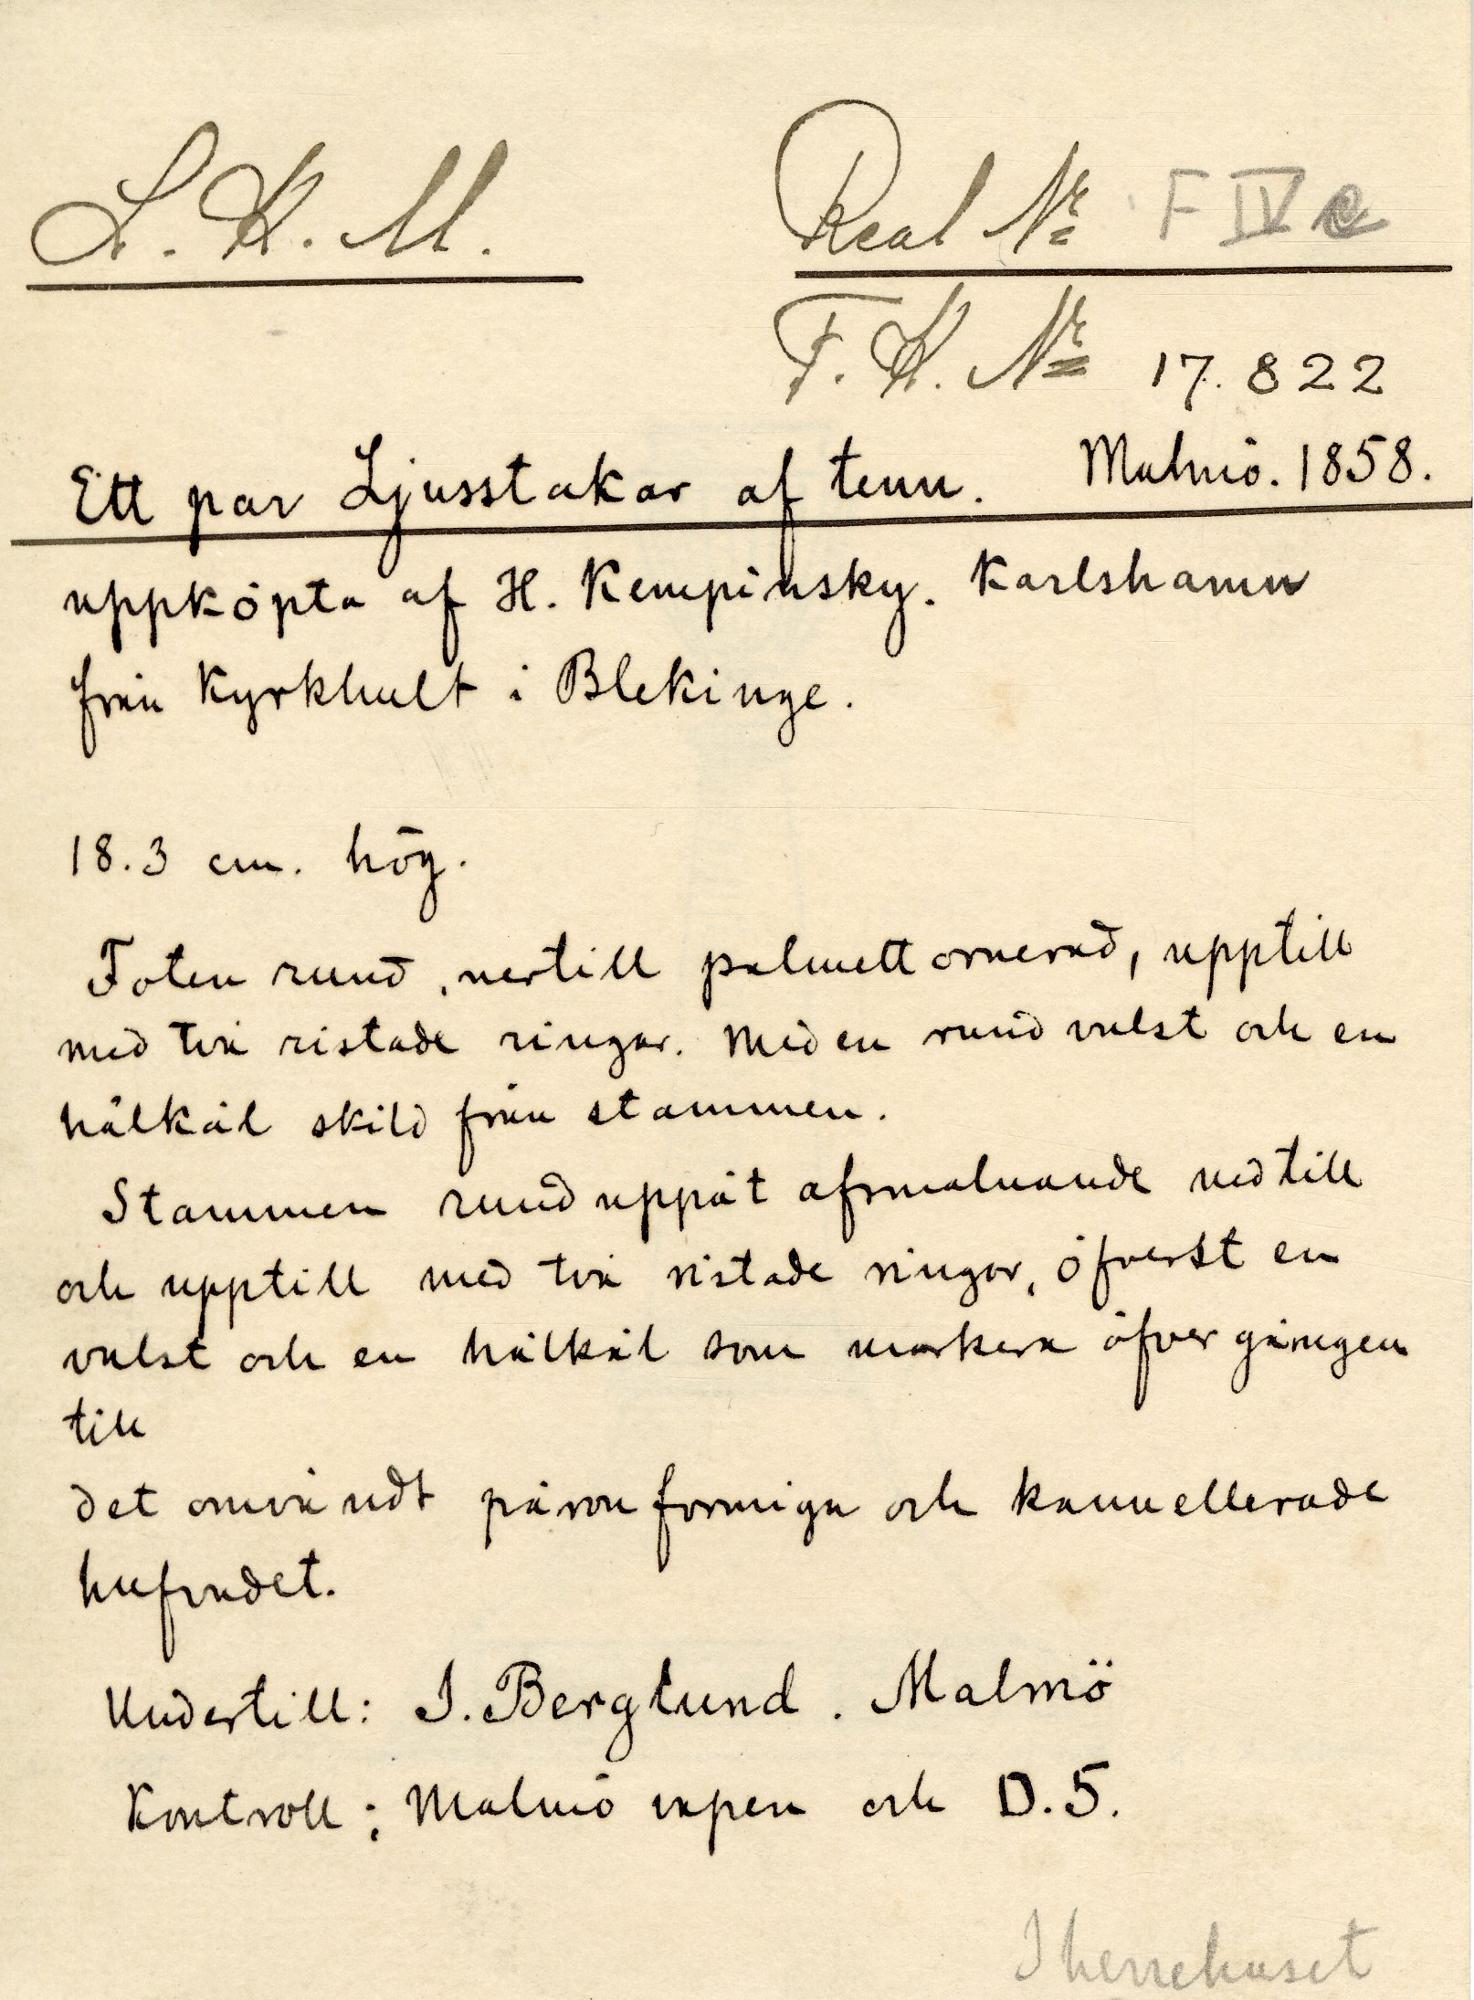 S. K. M.
Real Nr F IV e
F. K. Nr 17.822
Ett par Ljusstakar af tenn. Malmö. 1858.
uppköpta af H. Kempinsky. Karlshamn
från Kyrkhult i Blekinge.
18.3 cm. hög.
Foten rund, nertill palmettornerad, upptill
med två ristade ringar. Med en rund vulst och en
hålkäl skild från stammen.
Stammen rund uppåt afsmalnande nedtill
och upptill med två ristade ringar, öfverst en
vulst och en hålkäl som markera öfvergången
till
det omvändt päronformiga och kannellerade
hufvudet.
Undertill: I. Berglund. Malmö
Kontroll: Malmö vapen och D.5.
I herrehuset